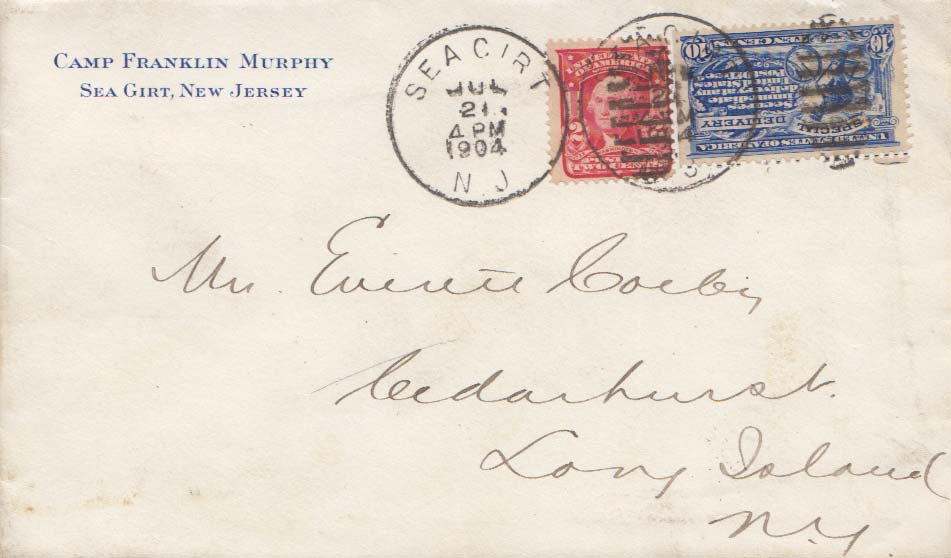 CAMP FRANKLIN MURPHY
SEA GIRT, NEW JERSEY
SEA GIRT
JUL
21
4 PM
1904
N.J.
UNITED STATES
OF AMERICA
2 2
UNITED STATES OF AMERICA
SPECIAL
DELIVERY
TEN CENTS
10 10
Mr. Everett Colby
Cedarhurst.
Long Island
N.Y.